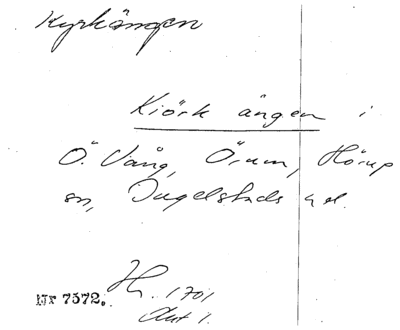 Kyrkängen
Kiörk ängen i
Ö. Vång, Örum, Hörup
sn, Ingelstads hd.
Nr 7572. H. 1701
Akt 1.